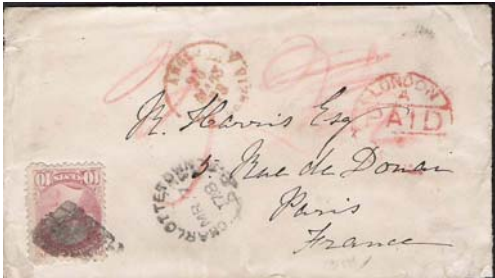 LONDON
PAID
R. Harris Esq
5. Rue de Douai
Paris
France
CHARLOTTETOWN
MR
78
10
10